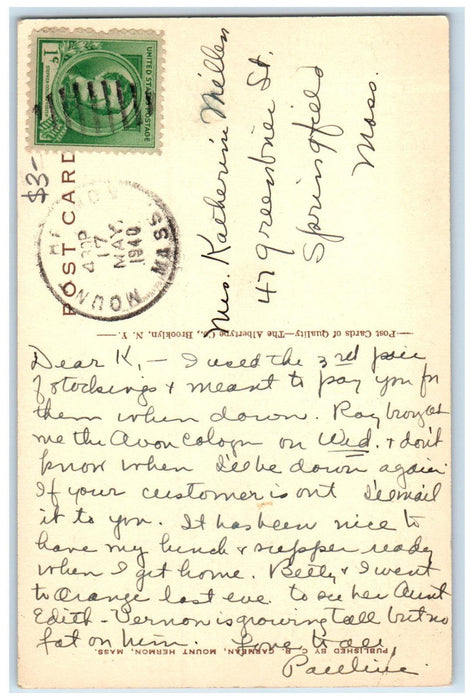 UNITED STATES POSTAGE
1
$3-
POST CARD
MOUNT HERMON
MASS.
430P
17
MAY
1940
Mrs. Katherine Miller
47 Greenbrier St.
Springfield
Mass.
—Post Cards of Quality—The Albertype Co., Brooklyn, N. Y.—
Dear K, — I used the 3rd pair
of stockings & meant to pay you for
them when down. Ray brought
me the Avon cologn on Wed. & don't
know when I'll be down again.
If your customer is ont I'll mail
it to you. It has been nice to
have my lunch & supper ready
when I get home. Betty & I went
to Orange last eve. to see her Aunt
Edith - Vernon is growing tall but no
fat on him. Love to all
Pauline.
PUBLISHED BY C. R. CARMEAN, MOUNT HERMON, MASS.